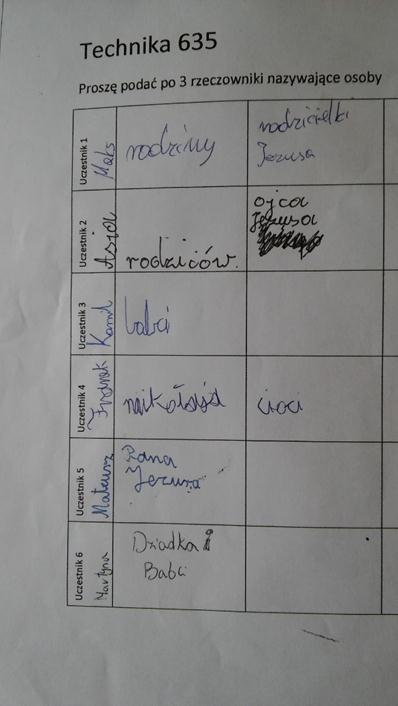 Technika 635
Proszę podać po 3 rzeczowniki nazywające osoby
Uczestnik 1
Maks
rodziny
rodzicielki
Jezusa
Uczestnik 2
Asia
rodziców.
ojca
Jezusa
Uczestnik 3
Kamil
babci
Uczestnik 4
mikołaja
cioci
Uczestnik 5
Mateusz
Pana
Jezusa
Uczestnik 6
Martyna
Dziadka i
Babci